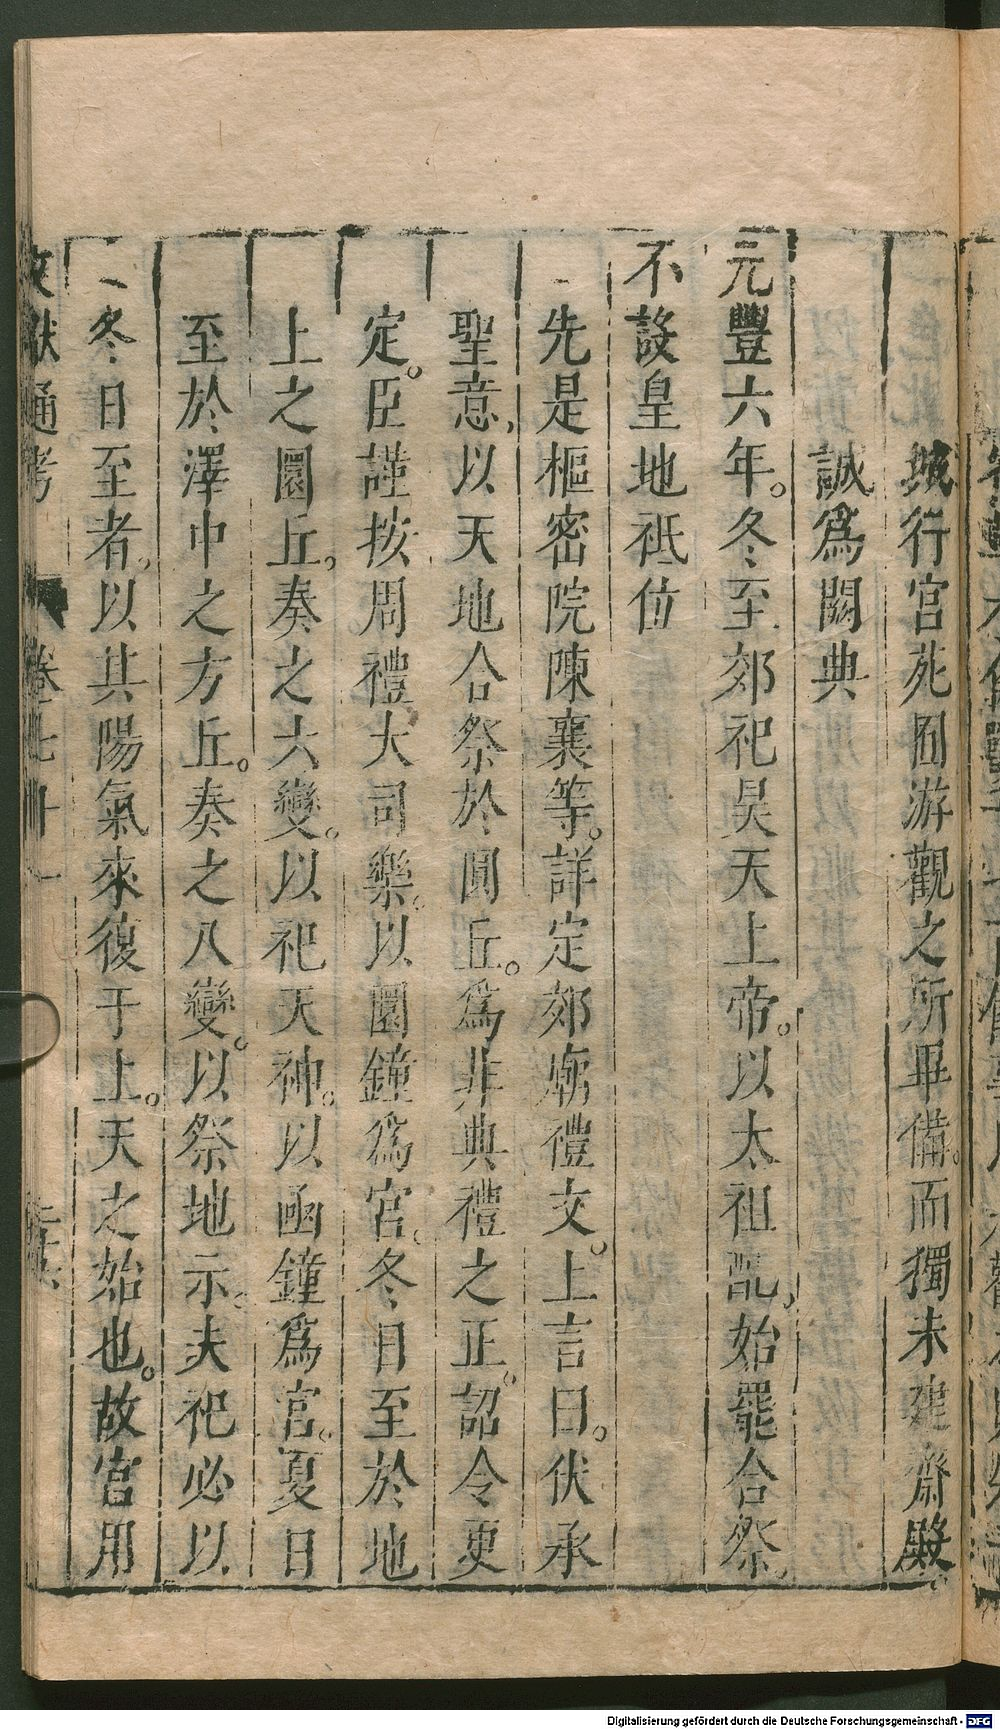 城行宮苑囿游觀之所畢備。而獨未建齋殿
誠爲闕典
元豐六年。冬至郊祀昊天上帝。以太祖配。始罷合祭。
不設皇地祇位
先是樞密院陳襄等。詳定郊廟禮文。上言曰。伏承
聖意。以天地合祭於圓丘。爲非典禮之正。詔令更
定。臣謹按周禮大司樂。以圜鐘爲宮。冬日至於地
上之圜丘。奏之六變。以祀天神。以函鐘爲宮。夏日
至於澤中之方丘。奏之八變。以祭地示。夫祀必以
冬日至者。以其陽氣來復于上。天之始也。故宮用
文獻通考 卷七十一
Digitalisierung gefördert durch die Deutsche Forschungsgemeinschaft - DFG